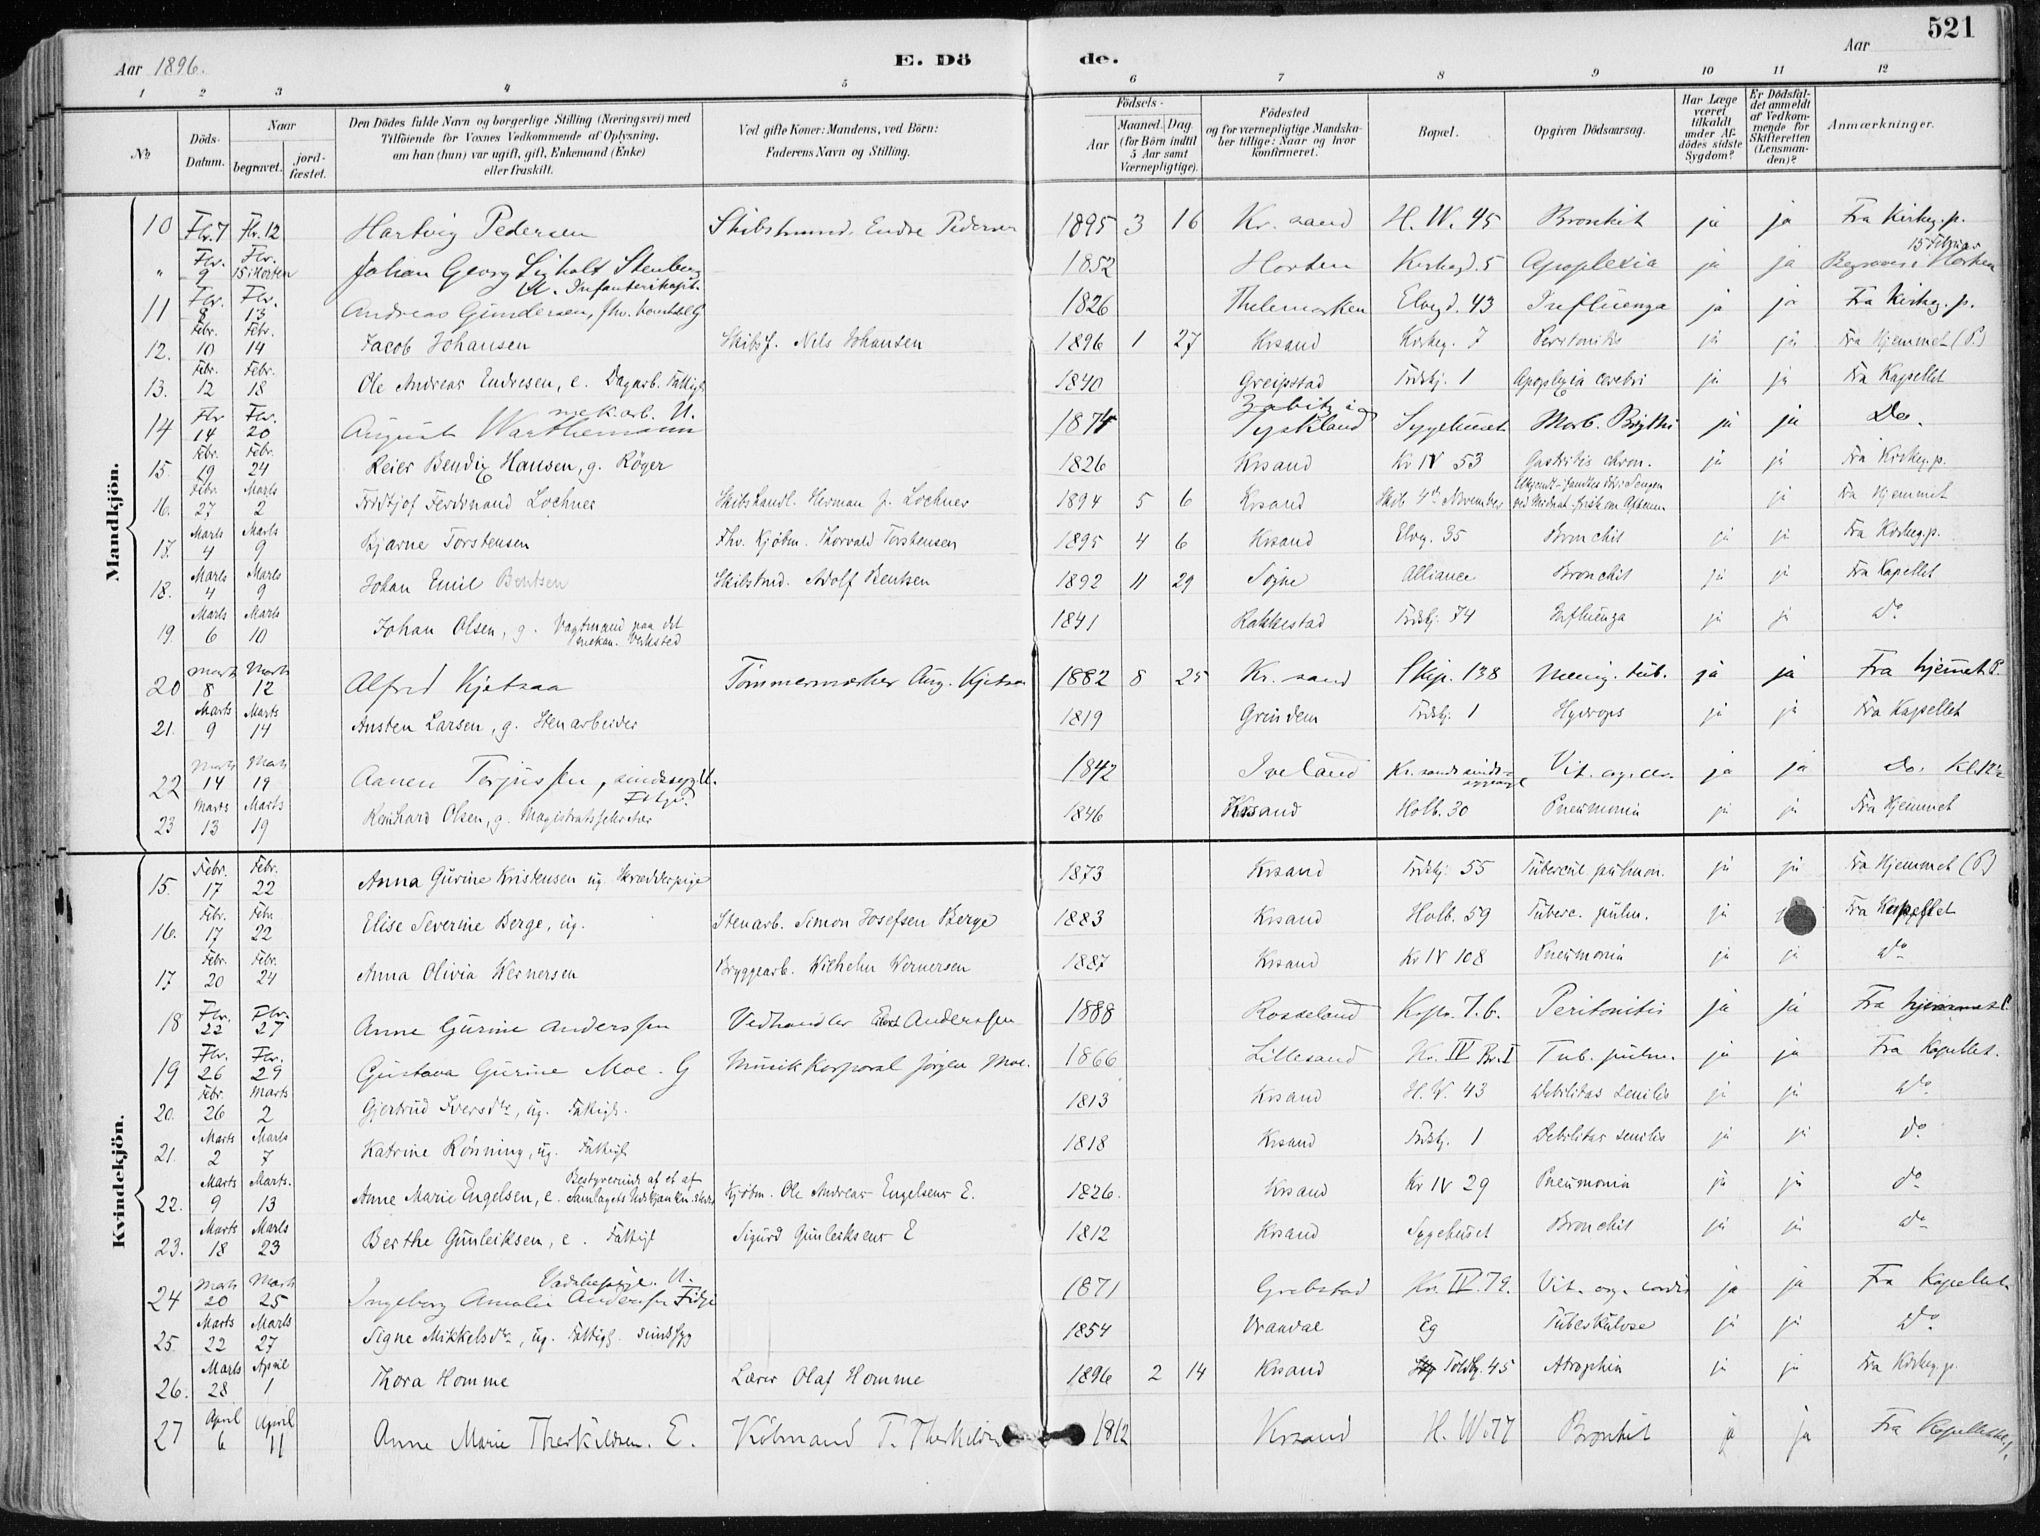 521
Aar 1896.
E. Dö de.
Aar
1 2 3 4 5 6 7 8 9 10 11 12
No
Döds-Datum.
Naar
begravet.
jord-fæstet.
Den Dödes fulde Navn og borgerlige Stilling (Næringsvei) med
Tilföiende for Voxnes Vedkommende af Oplysning,
om han (hun) var ugift, gift, Enkemand (Enke)
eller fraskilt.
Ved gifte Koner: Mandens, ved Börn:
Faderens Navn og Stilling.
Födsels-
Aar
Maaned. Dag.
(for Börn indtil
5 Aar samt
Værnepligtige).
Födested
og for værnepligtige Mandska-
ber tillige: Naar og hvor
konfirmeret.
Bopæl.
Opgiven Dödsaarsag.
Har Læge
været
tilkaldt
under Af-
dödes sidste
Sygdom?
Er Dödsfal-
det anmeldt
af Vedkom-
mende for
Skifteretten
(Lensman-
den)?
Anmærkninger.
Mandkjön.
10 Fbr. 7 Fbr. 12 Hartvig Pedersen Skibstmmd. Endre Pedersen 1895 3 16 Kr.sand H. W. 45 Bronkit ja ja Fra Kirkeg. p.
" Fbr. 9 Fbr. 15 i Horten Johan Georg Stenberg U. Infanterikapt. 1852 Horten Kirkegd. 5 Apoplexia ja ja Begraves i Horten 15 Februar
11 Fbr. 8 Fbr. 13 Andreas Gundersen, fhv. G 1826 Thelemarken Elvegd. 43 Influenza ja ja Fra Kirkeg. p.
12. Febr. 10 Febr. 14 Jacob Johansen Skibsf. Nils Johansen 1896 1 27 Krsand Kirkeg. 7 Peritonitis ja ja Fra Hjemmet (P.)
13. Febr. 12 Febr. 18 Ole Andreas Endresen, e. Dagarb. Fattigl. 1840 Greipstad Fndskj. 1 Apoplexia cerebri ja ja Fra Kapellet
14 Fbr 14 Fbr. 20 August Warthemann mek. arb. U. 1874 Zabitz i Tyskland Sygehuset Morb. Brigthi ja ja Do.
15. Febr. 19 Febr. 24 Reier Bendix Hansen, g. Röger 1826 Krsand Kr IV 53 Gastritis chron. ja ja Fra Kirkeg. p.
16. Febr. 27 Marts 2 Fridtjof Ferdinand Lochner Skibshandl. Herman J. Lochner 1894 5 6 Krsand Skib 4de November Ukjendt - fandtes död i Sengen ved Midnat - frisk om Aftenen ja Fra Hjemmet
17. Marts 4 Marts 9 Bjarne Torstensen Fhv. Kjöbm. Thorvald Torstensen 1895 4 6 Krsand Elveg. 35 Bronchit ja ja Fra Kirkeg. p.
18. Marts 4 Marts 9 Johan Emil Bentsen Skibstmd. Adolf Bentsen 1892 11 29 Søgne Alliance Bronchit ja ja Fra Kapellet
19. Marts 6 Marts 10 Johan Olsen, g. Vagtmand paa det mekan. Verksted 1841 Rakkestad Fndskj. 74 Influenza ja ja do
20 Marts 8 Marts 12 Alfred Kjetsaa Tömmermærker Aug. Kjetsaa 1882 8 25 Kr.sand Skip. 138 Mening. tub. ja ja Fra hjemmet P.
21. Marts 9 Marts 14 Ansten Larsen, g. Stenarbeider 1819 Grindem Fndskj. 1 Hydrops ja ja Fra Kapellet
22 Marts 14 Marts 19 Aanen Terjussen, sindssyg U. 1842 Iveland Kr.sands sinds- Vit. org. cor. ja ja Do. Kl.
23 Marts 13 Marts 19 Reinhard Olsen, g. Magistratssekretær 1846 Krsand Holb. 30 Pneumonia ja ja Fra Hjemmet
Kvindekjön.
15. Febr. 17 Febr. 22 Anna Gurine Kristensen ug. Skrædderpige 1873 Krsand Fndskj. 55 Tubercul. pulmon. ja ja Fra Hjemmet (P)
16. Febr. 17 Febr. 22 Elise Severine Berge, ug. Stenarb. Simon Josefsen Berge 1883 Krsand Holb. 59 Tuberc. pulm. ja Fra Kapellet
17 Febr. 20 Febr. 24 Anna Olivia Wernersen Bryggearb. Wilhelm Wernersen 1887 Krsand Kr IV 108 Pneumonia ja ja do
18 Fbr. 22 Fbr. 27 Anne Gurine Anderssen Vedhandler Anderssen 1888 Rosseland 7. b. Peritonitis ja ja Fra hjemmet P.
19 Fbr. 26 Fbr. 29 Gustava Gurine Moe. G Musikkorporal Jørgen Moe. 1866 Lillesand Kr. IV Br. I Tub. pulm. ja ja Fra Kapellet.
20. Febr. 26 Marts 2 Gjertrud Iversdtr, ug. Fattigl. 1813 Krsand H. W. 43 Debilitas senilis ja ja do
21. Marts 2 Marts 7 Katrine Rönning, ug. Fattigl 1818 Krsand Fndskj. 1 Debilitas senilis ja ja do
22. Marts 9 Marts. 13 Anne Marie Engelsen, e. Bestyrerinde af et af Samlagets Udskjænkn.steder Kjöbm. Ole Andreas Engelsens E. 1826. Krsand Kr IV 29 Pneumonia ja ja do
23. Marts 18 Marts 23 Berthe Gunleiksen, e. Fattigl Sigurd Gunleiksens E 1812 Krsand Sygehuset Bronchit ja ja do
24 Marts 20 Marts 25 Ingeborg Amalie Anderssen U. 1871 Grebstad Kr. IV. 79. Vit. org. cordis ja ja Fra Kapellet
25 Marts 22 Marts 27 Signe Mikkelsdtr, ug. Fattigl. sindssyg 1854 Vraadal Eg Tuberkulose ja ja do
26. Marts 28 April 1 Thora Homme Lærer Olaf Homme 1896 2 14 Krsand Toldbg. 45 Atrophia ja ja Fra Kirkeg. p.
27 April 6 April 11 Anne Marie Therkildsen. E. Köbmand T. Therkildsen 1812 Krsand H. W. 77 Bronkit ja ja Fra Kapellet